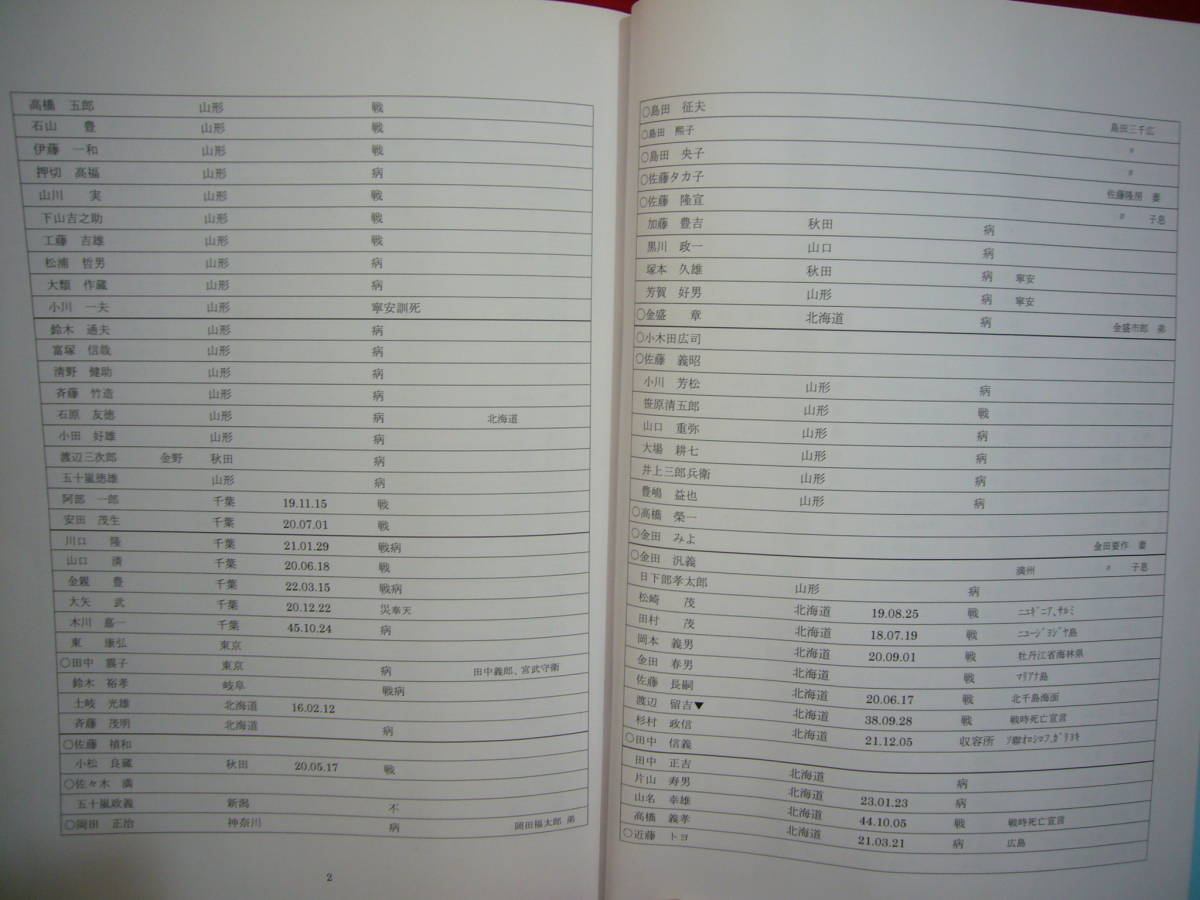 高橋 五郎 山形 戦
石山 豊 山形 戦
伊藤 一和 山形 戦
押切 高福 山形 病
山川 実 山形 戦
下山吉之助 山形 戦
工藤 吉雄 山形 戦
松浦 哲男 山形 病
大類 作蔵 山形 病
小川 一夫 山形 寧安訓死
鈴木 通夫 山形 病
富塚 信哉 山形 病
清野 健助 山形 病
斉藤 竹造 山形 病
石原 友徳 山形 病 北海道
小田 好雄 山形 病
渡辺三次郎 金野 秋田 病
五十嵐徳雄 山形 病
阿部 一郎 千葉 19.11.15 戦
安田 茂生 千葉 20.07.01 戦
川口 隆 千葉 21.01.29 戦病
山口 清 千葉 20.06.18 戦
金親 豊 千葉 22.03.15 戦病
大矢 武 千葉 20.12.22 災奉天
木川 嘉一 千葉 45.10.24 病
東 康弘 東京
○田中 子 東京 病 田中義郎、宮武守衛
鈴木 裕孝 岐阜 戦病
土岐 光雄 北海道 16.02.12
斉藤 茂明 北海道 病
○佐藤 禎和
小松 良蔵 秋田 20.05.17 戦
○佐々木 満
五十嵐政義 新潟 不
○岡田 正治 神奈川 病 岡田福太郎 弟
2
○島田 征夫 島田三千広
○島田 熙子 〃
○島田 央子 〃
○佐藤タカ子 佐藤隆房 妻
○佐藤 隆宣 〃 子息
加藤 豊吉 秋田 病
黒川 政一 山口 病
塚本 久雄 秋田 病 寧安
芳賀 好男 山形 病 寧安
○金盛 章 北海道 病 金盛市郎 弟
○小木田広司
○佐藤 義昭
小川 芳松 山形 病
笹原清五郎 山形 戦
山口 重弥 山形 病
大場 耕七 山形 病
井上三郎兵衛 山形 病
豊嶋 益也 山形 病
○高橋 榮一
○金田 みよ 金田要作 妻
○金田 汎義 満州 〃 子息
日下部孝太郎 山形 病
松崎 茂 北海道 19.08.25 戦 ﾆｭｷﾞﾆｱ､ｻﾙﾐ
田村 茂 北海道 18.07.19 戦 ﾆｭｰｼﾞｮｼﾞﾔ島
岡本 義男 北海道 20.09.01 戦 牡丹江省海林県
金田 春男 北海道 戦 ﾏﾘｱﾅ島
佐藤 長嗣 北海道 20.06.17 戦 北千島海面
渡辺 留吉▼ 北海道 38.09.28 戦 戦時死亡宣言
杉村 政信 北海道 21.12.05 収容所
○田中 信義
田中 正吉 北海道 病
片山 寿男 北海道 23.01.23 病
山名 幸雄 北海道 44.10.05 戦 戦時死亡宣言
高橋 義孝 北海道 21.03.21 病 広島
○近藤 トヨ